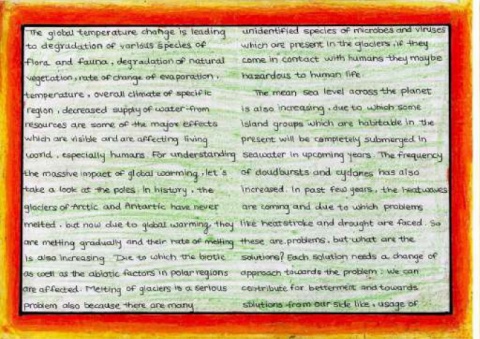 The global temperature change is leading
to degradation of various species of
flora and fauna, degradation of natural
vegetation, rate of change of evaporation,
temperature, overall climate of specific
region, decreased supply of water from
resources are some of the major effects
which are visible and are affecting living
world, especially humans. For understanding
the massive impact of global warming, let's
take a look at the poles. In history, the
glaciers of Arctic and Antartic have never
melted, but now due to global warming, they
are melting gradually and their rate of melting
is also increasing. Due to which the biotic
as well as the abiotic factors in polar regions
are affected. Melting of glaciers is a serious
problem also because there are many
unidentified species of microbes and viruses
which are present in the glaciers, if they
come in contact with humans they maybe
hazardous to human life.
The mean sea level across the planet
is also increasing, due to which some
island groups which are habitable in the
present will be completely submerged in
seawater in upcoming years. The frequency
of cloudbursts and cyclones has also
increased. In past few years, the heatwaves
are coming and due to which problems
like heatstroke and drought are faced. So
these are problems, but what are the
solutions? Each solution needs a change of
approach towards the problem. We can
contribute for betterment and towards
solutions from our side like, usage of